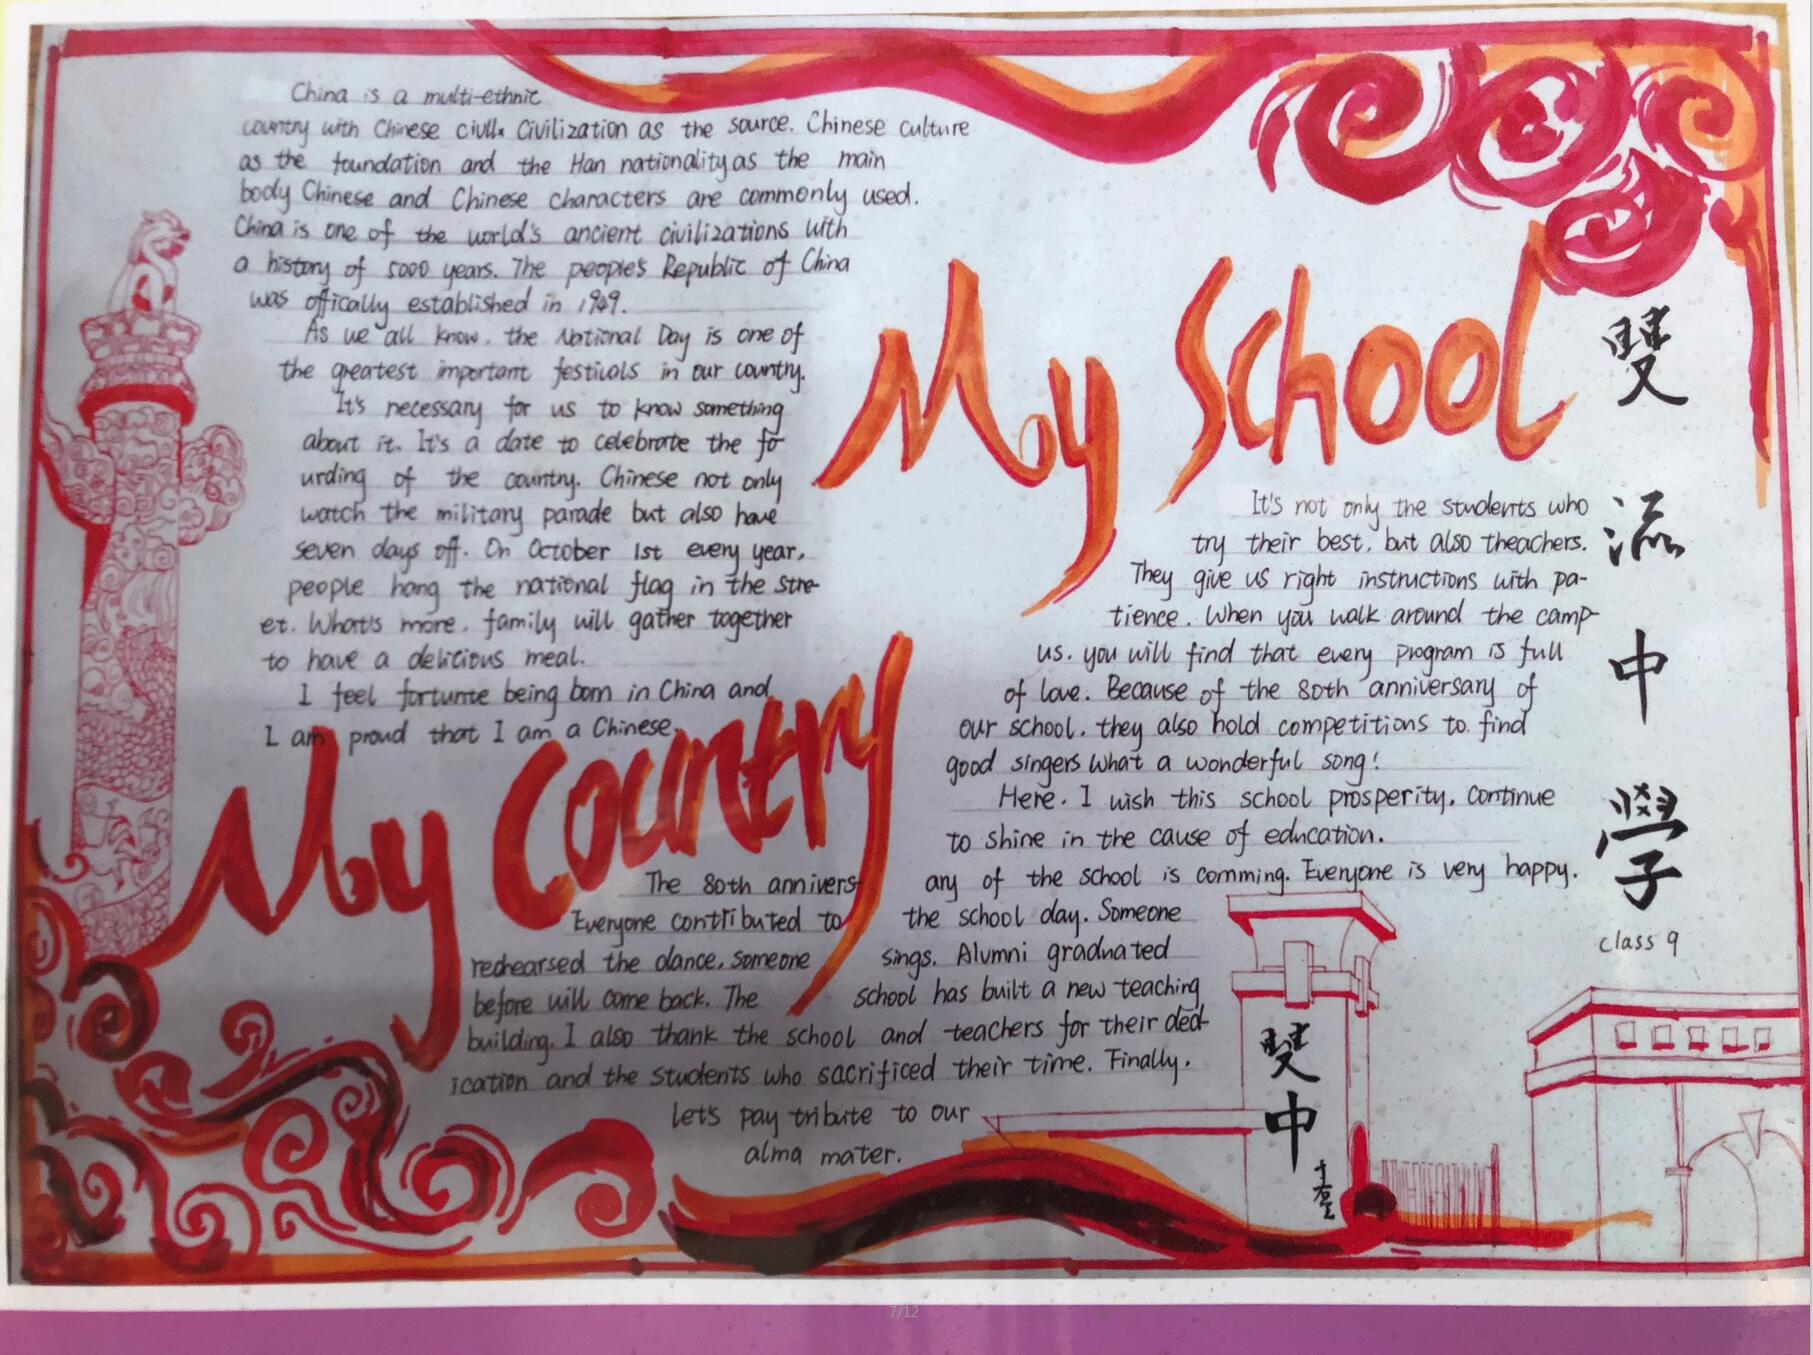 China is a multi-ethnic
country with Chinese civll. Civilization as the source. Chinese culture
as the foundation and the Han nationality as the main
body Chinese and Chinese characters are commonly used.
China is one of the world's ancient civilizations with
a history of 5000 years. The people's Republic of China
was offically established in 1949.
As we all know. the National Day is one of
the greatest important festivals in our country.
It's necessary for us to know something
about it. It's a date to celebrate the fo-
urding of the country. Chinese not only
watch the military parade but also have
seven days off. On October 1st every year,
people hang the national flag in the stre-
et. What's more. family will gather together
to have a delicious meal.
I feel fortunte being born in China and
I am proud that I am a Chinese.
My Country
My School
It's not only the students who
try their best. but also theachers.
They give us right instructions with pa-
tience. When you walk around the camp-
us. you will find that every program is full
of love. Because of the 80th anniversary of
our school. they also hold competitions to find
good singers What a wonderful song!
Here. I wish this school prosperity. Continue
to shine in the cause of education.
The 80th annivers- ary of the school is comming. Everyone is very happy.
Everyone contributed to the school day. Someone
rechearsed the dance. Someone sings. Alumni graduated
before will come back. The school has built a new teaching
building. I also thank the school and teachers for their ded-
ication and the students who sacrificed their time. Finally.
let's pay tribute to our
alma mater.
雙
流
中
學
class 9
雙
中
7/12